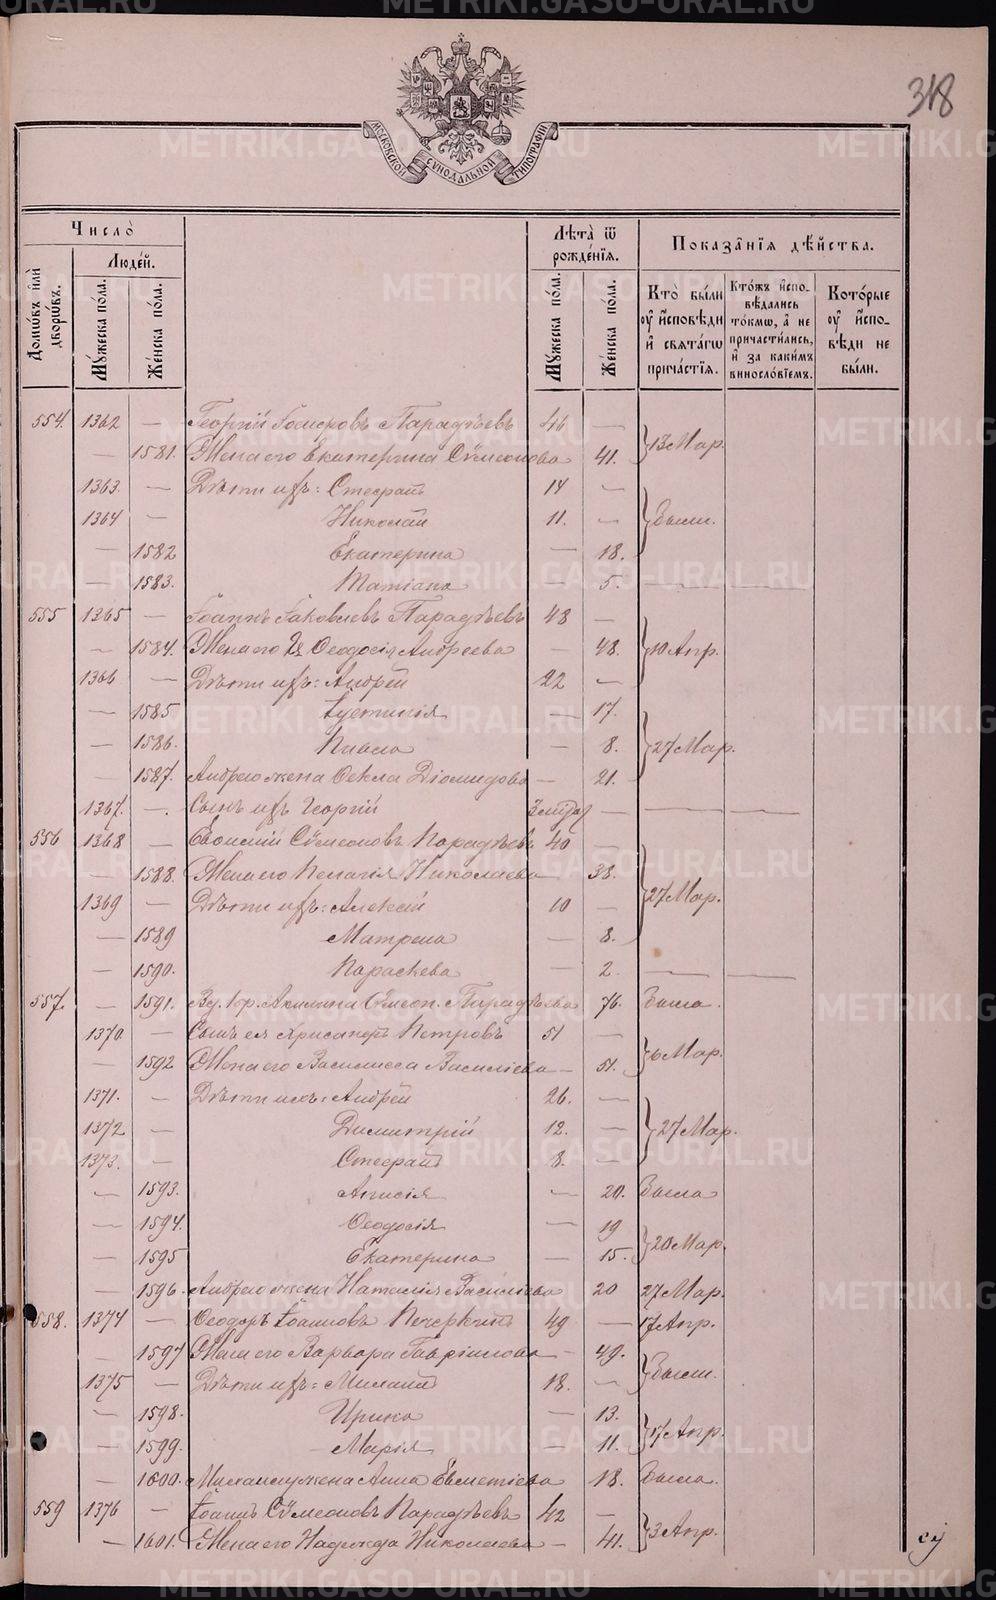 318
МОСКОВСКОЙ СѴНОДАЛЬНОЙ ТИПОГРАФІИ
Число̀
Домѡвъ и҆лѝ дворѡвъ.
Людей.
Мꙋжеска по́ла.
Же́нска по́ла.
Лѣта̀ ѿ рожде́нїѧ.
Мꙋжеска по́ла.
Же́нска по́ла.
Показа̂нїѧ дѣйства.
Кто̀ бы́ли оу҆ и҆сповѣди и҆ свѧта́гѡ прича́стїѧ.
Кто́жъ и҆споѣдались то́кмѡ, а҆ не причасти́лись, и҆ за каки́мъ винослόвїемъ.
Кото́рые оу҆ и҆сповѣди не бы́ли.
554. 1362 — Георгій Парадѣевъ 46 — 13 Мар.
— 1581. Жена его Екатерина Сѵмеонова 41.
1363. — Дѣти ихъ: Стефанъ 14 —
1364 — Николай 11. — Были.
— 1582 Екатерина — 18.
— 1583. Татіана — 5. — —
555 1365 — Іоаннъ Іаковлевъ Парадѣевъ 48 —
— 1584. Жена его Ѳеодосія Андреева — 48. 10 Апр.
1366 — Дѣти ихъ: Андрей 22 —
— 1585 Іустинія — 17.
— 1586. — 8. 27 Мар.
— 1587. Андрею жена Ѳекла Діомидова — 21.
1367. — Сынъ ихъ Георгій — — —
556 1368 — Евѳимій Сѵмеоновъ Парадѣевъ 40 —
— 1588. Жена его Пелагія Николаева 38.
1369 — Дѣти ихъ: Алексій 10 — 27 Мар.
— 1589 Матрена 8.
— 1590. Параскева — 2. — —
557. — 1591. Вд. Акилина Сѵмеон. Парадѣева 76. Была.
1370. — Сынъ ея Хрисанфъ Петровъ 51 —
— 1592 Жена его Василисса Василіева — 51. 6 Мар.
1371. — Дѣти ихъ: Андрей 26. —
1372 — Димитрій 12. — 27 Мар.
1373. — Стефанъ 8. —
— 1593. Анисія — 20. Была
— 1594. Ѳеодосія — 19
— 1595 Екатерина — 15. 20 Мар.
— 1596. Андрею жена Наталія Василіева 20 27 Мар.
558. 1374 — Ѳеодоръ Іоанновъ Печеркинъ 49 — 17 Апр.
— 1597 Жена его Варвара Гавріилова — 49.
1375 — Дѣти ихъ: Михаилъ 18. — Были.
— 1598. Ирина — 13.
— 1599. Марія — 11. 17 Апр.
— 1600. Михаилу жена Анна — 18. Была.
559 1376 — Іоаннъ Сѵмеоновъ Парадѣевъ 42 —
— 1601. Жена его Надежда Николаева — 41. 3 Апр.
METRIKI.GASO-URAL.RU